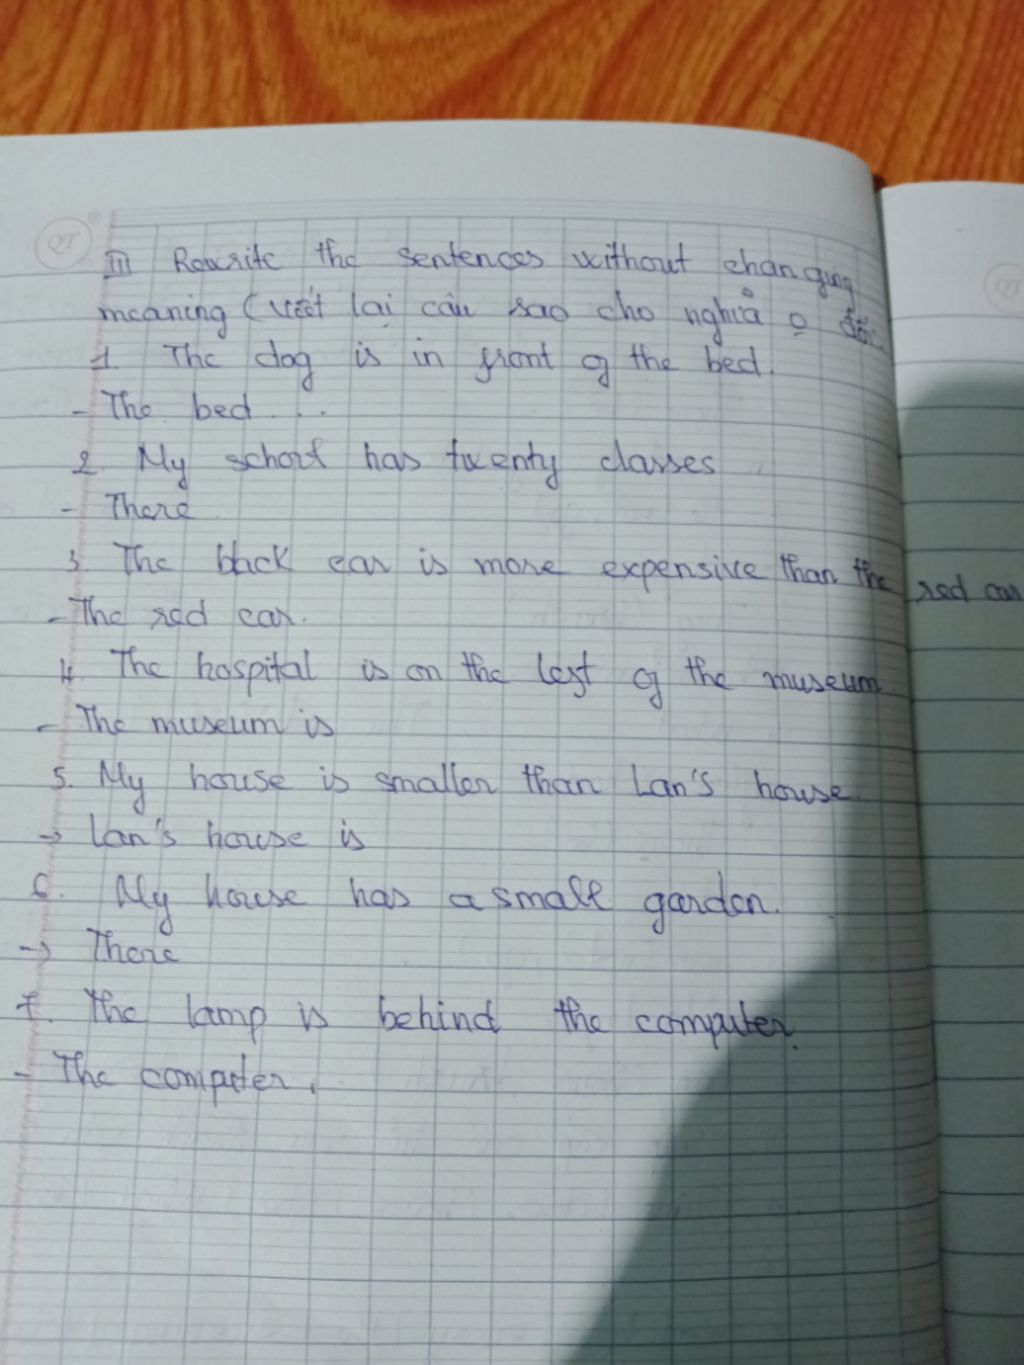 III Rewrite the sentences without changing
meaning (viết lại câu sao cho nghĩa o đổi
1. The dog is in front of the bed.
- The bed ...
2. My school has twenty classes
- There
3. The black car is more expensive than the red car
- The red car.
4. The hospital is on the left of the museum
- The museum is
5. My house is smaller than Lan's house.
→ Lan's house is
6. My house has a small garden.
→ There
7. The lamp is behind the computer.
- The computer.